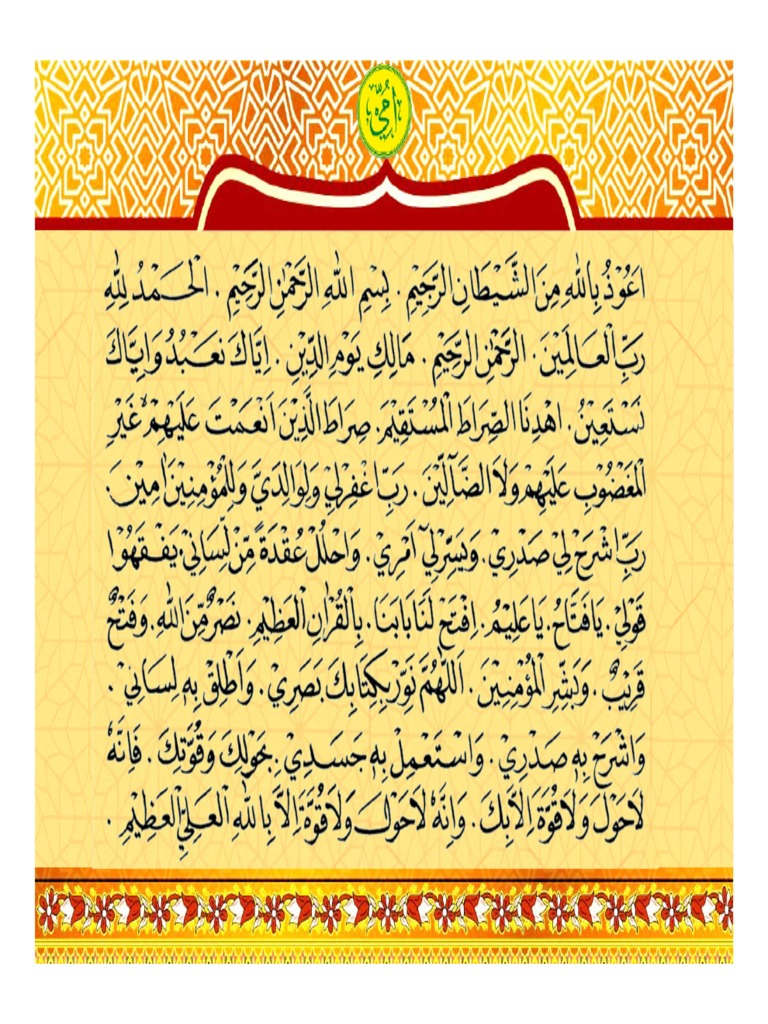 أمي
اَعُوْذُ بِاللهِ مِنَ الشَّيْطَانِ الرَّجِيْمِ. بِسْمِ اللهِ الرَّحْمٰنِ الرَّحِيْمِ. اَلْحَمْدُ لِلّٰهِ
رَبِّ الْعَالَمِيْنَ. الرَّحْمٰنِ الرَّحِيْمِ. مَالِكِ يَوْمِ الدِّيْنِ. اِيَّاكَ نَعْبُدُ وَاِيَّاكَ
نَسْتَعِيْنُ. اهْدِنَا الصِّرَاطَ الْمُسْتَقِيْمَ. صِرَاطَ الَّذِيْنَ اَنْعَمْتَ عَلَيْهِمْ غَيْرِ
الْمَغْضُوْبِ عَلَيْهِمْ وَلَا الضَّآلِّيْنَ. رَبِّ اغْفِرْلِيْ وَلِوَالِدَيَّ وَلِلْمُؤْمِنِيْنَ اٰمِيْنَ.
رَبِّ اشْرَحْ لِيْ صَدْرِيْ. وَيَسِّرْلِيْٓ اَمْرِيْ. وَاحْلُلْ عُقْدَةً مِّنْ لِّسَانِيْ يَفْقَهُوْا
قَوْلِيْ. يَافَتَّاحُ. يَاعَلِيْمُ. اِفْتَحْ لَنَا بَابَنَا. بِالْقُرْاٰنِ الْعَظِيْمِ. نَصْرٌ مِّنَ اللهِ. وَفَتْحٌ
قَرِيْبٌ. وَبَشِّرِ الْمُؤْمِنِيْنَ. اَللّٰهُمَّ نَوِّرْ بِكِتَابِكَ بَصَرِيْ. وَاَطْلِقْ بِهٖ لِسَانِيْ.
وَاشْرَحْ بِهٖ صَدْرِيْ. وَاسْتَعْمِلْ بِهٖ جَسَدِيْ. بِحَوْلِكَ وَقُوَّتِكَ. فَاِنَّهٗ
لَاحَوْلَ وَلَاقُوَّةَ اِلَّابِكَ. وَاِنَّهٗ لَاحَوْلَ وَلَاقُوَّةَ اِلَّا بِاللهِ الْعَلِيِّ الْعَظِيْمِ.